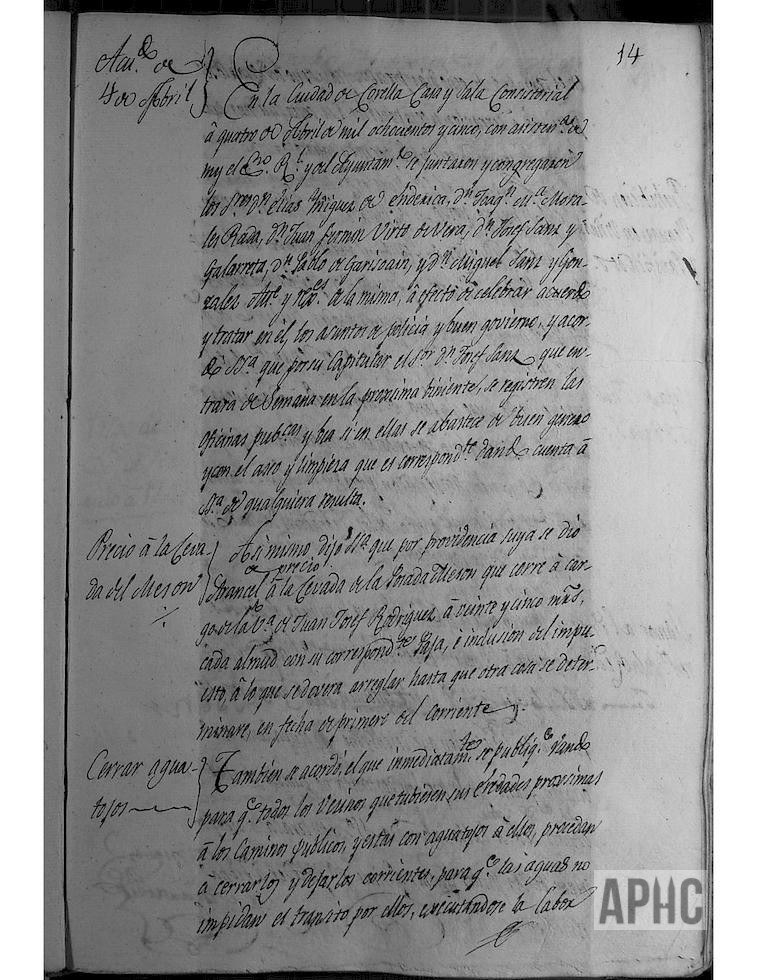 14
Acu.do de
4 de Abril
En la Ciudad de Corella Casa y Sala Consistorial
â quatro de Abril de mil ochocientos y cinco, con asisten.a de
my el Es.no R.l y del Ayuntam.to se juntaron y congregaron
los S.res d.n Elias Iñiguez de d.n Joaq.n M.a Mora-
les Rada, d.n Juan fermin Virto de Vera, d.n Josef Sanz y
Galarreta, d.n Pablo de Garisoain, y d.n Miguel Sanz y Gon-
zalez Alc.e y reg.es de la misma, â efecto de celebrar acuerdo
y tratar en êl, los asuntos de policia y buen govierno, y acor-
dó S.S.a que por su Capitular el S.or d.n Josef Sanz que en-
trará de Semana en la proxima biniente, se registren las
oficinas pub.cas y bea si en ellas se abastece de buen genero
y con el aseo y limpieza que es correspond.te dando cuenta â
S.S.a de qualquiera resulta.
Precio â la Ceva-
da del Meson
Asi mismo dijo S.S.a que por providencia suya se dio
de precio
Arancel â la Cevada de la Posada Meson que corre â car-
go de la V.a de Juan Josef Rodriguez, â veinte y cinco mrs,
cada almud con su correspond.te Paja, è inclusión del impu-
esto, â lo que se devera arreglar hasta que otra cosa se deter-
minare, en fecha de primero del corriente
Cerrar agua-
tojos
Tambien se acordó, el que inmediatam.te se publiq.e vando
para q.e todos los Vecinos que tubieren sus eredades proximas
â los Caminos publicos, y estas con aguatojos â ellos, procedan
â cerrarlos y dejarlos corrientes, para q.e las aguas no
impidan el transito por ellos, executandose la labor
APHC